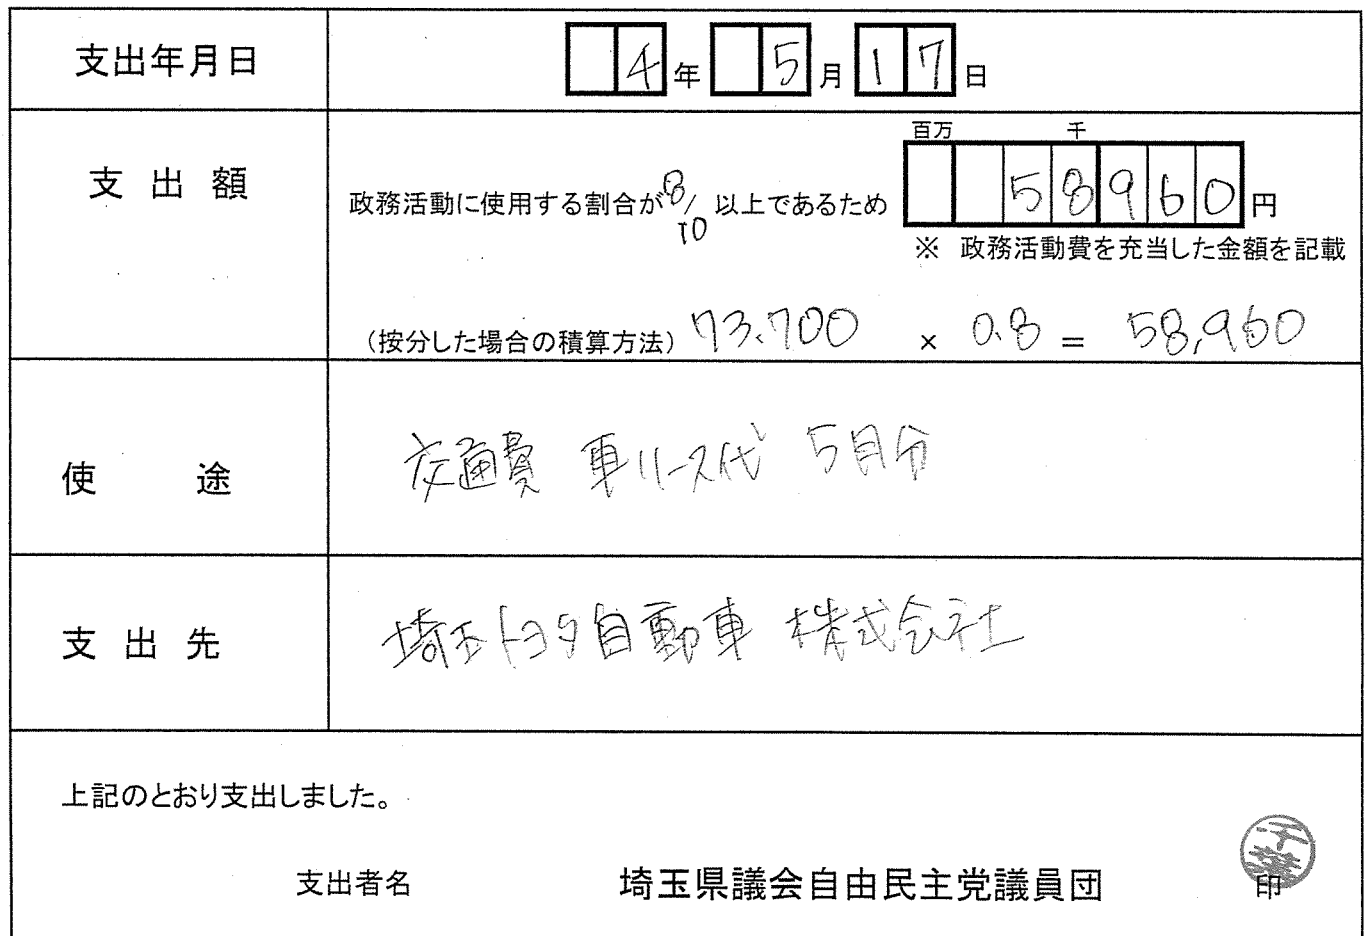 支出年月日 4年 5月17日
百万 千
支出額 政務活動に使用する割合が8/10以上であるため 58960円
※ 政務活動費を充当した金額を記載
(按分した場合の積算方法) 73,700 × 0.8 = 58,960
使途 交通費 車リース代 5月分
支出先 埼玉トヨタ自動車 株式会社
上記のとおり支出しました。
支出者名 埼玉県議会自由民主党議員団 印
千葉